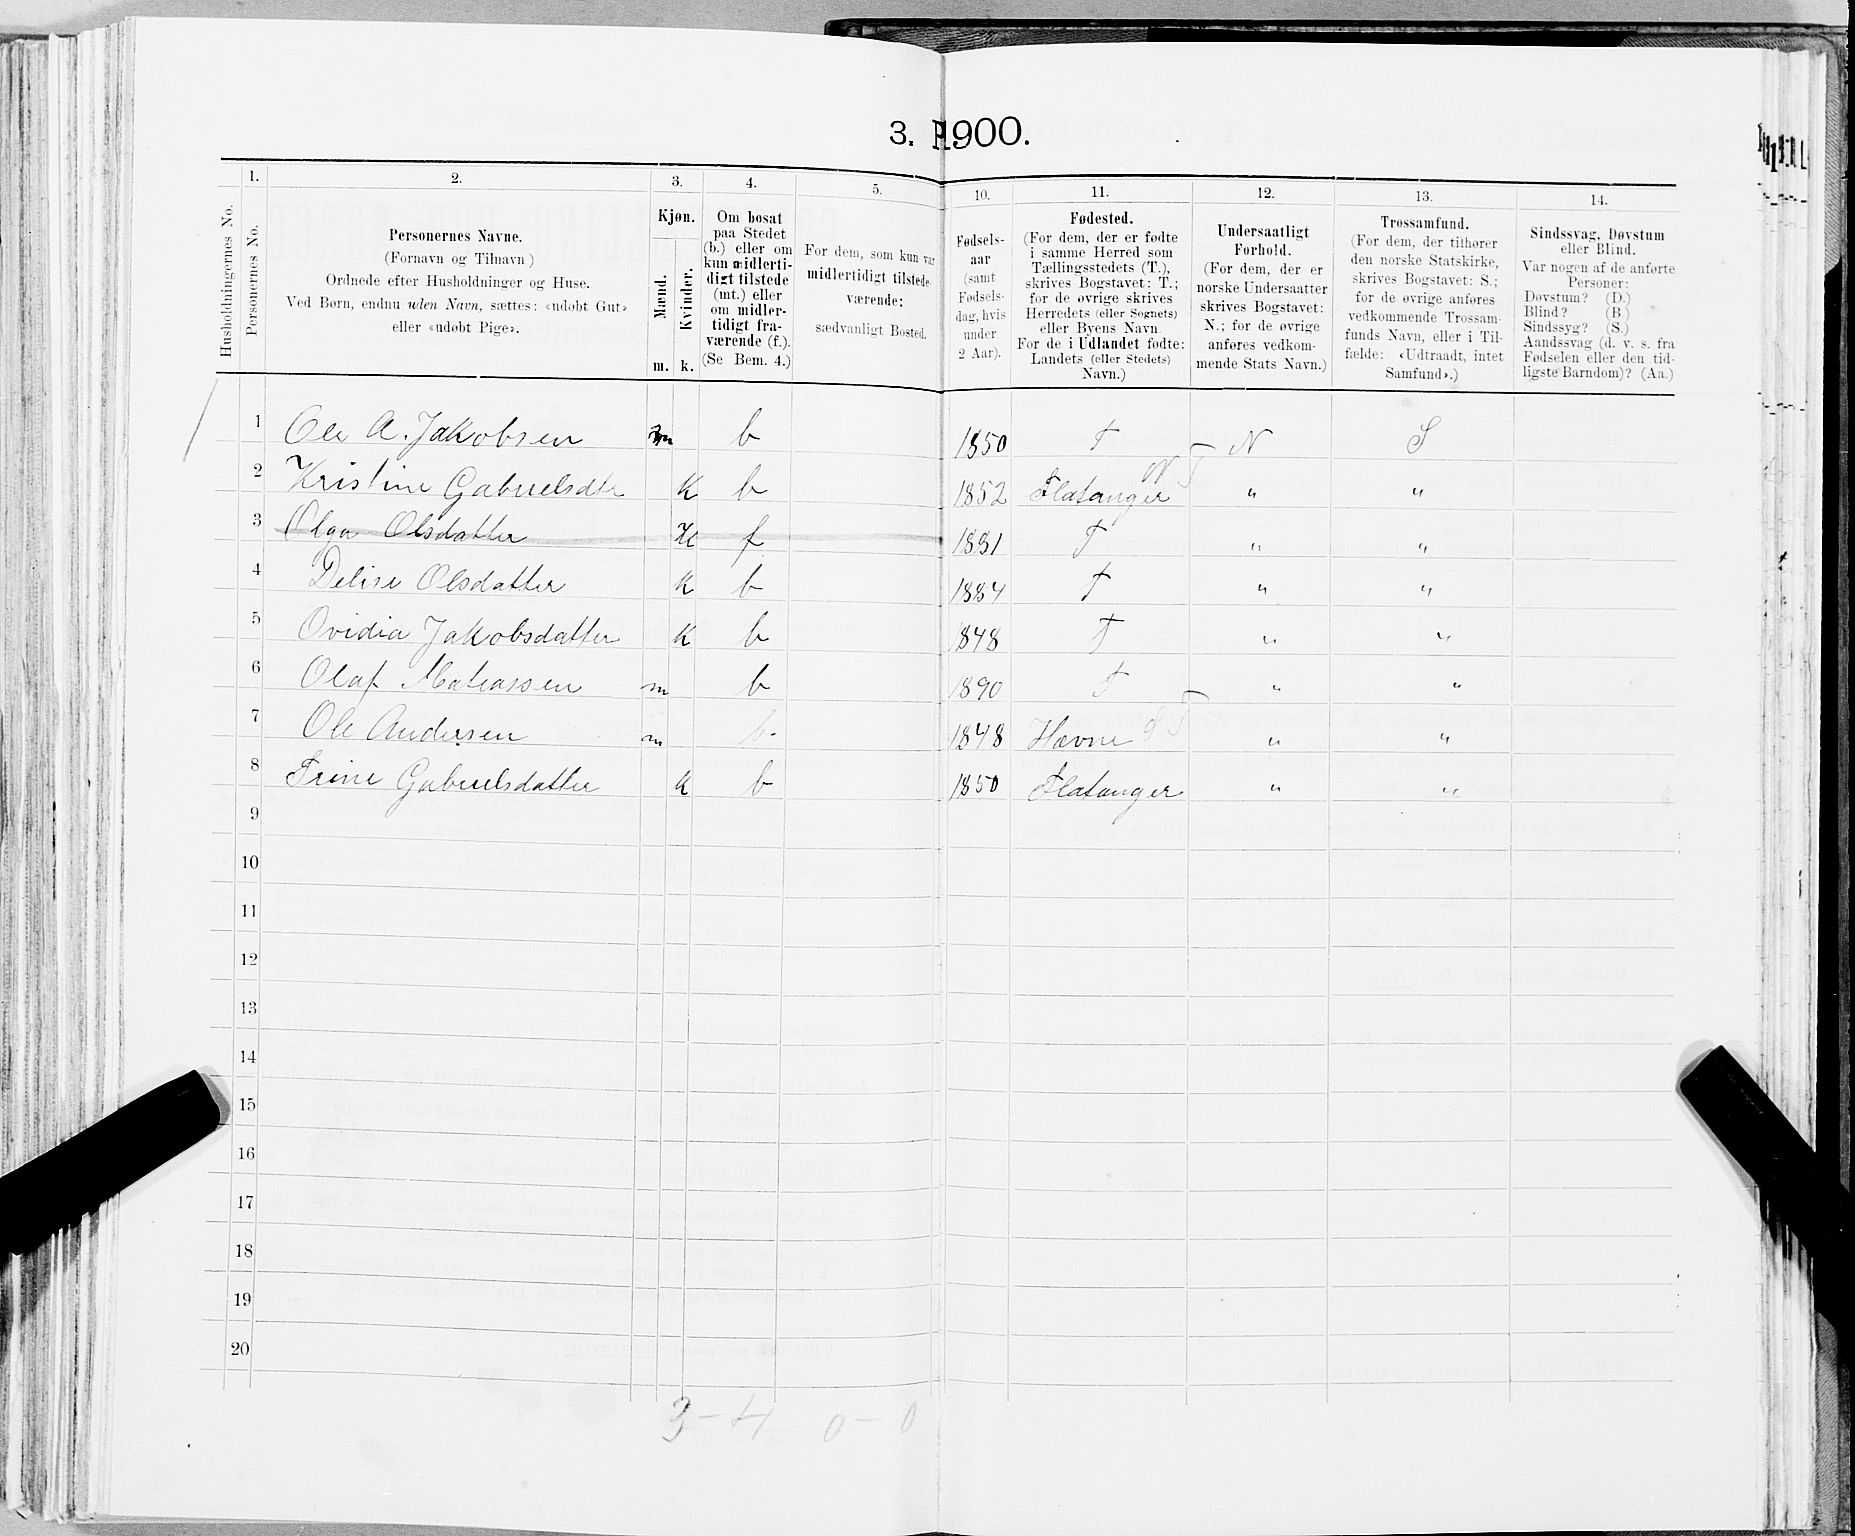 3. 1900.
1. 2. 3. 4. 5. 10. 11. 12. 13. 14.
Husholdningernes No.
Personernes No.
Personernes Navne.
(Fornavn og Tilnavn)
Ordnede efter Husholdninger og Huse.
Ved Børn, endnu uden Navn, sættes: «udøbt Gut»
eller «udøbt Pige».
Kjøn.
Mænd.
Kvinder.
m. k.
Om bosat
paa Stedet
(b.) eller om
kun midlerti-
digt tilstede
(mt.) eller
om midler-
tidigt fra-
værende (f.).
(Se Bem. 4.)
For dem, som kun var
midlertidigt tilstede-
værende:
sædvanligt Bosted.
Fødsels-
aar
(samt
Fødsels-
dag, hvis
under
2 Aar).
Fødested.
(For dem, der er fødte
i samme Herred som
Tællingsstedets (T.),
skrives Bogstavet: T.;
for de øvrige skrives
Herredets (eller Sognets)
eller Byens Navn.
For de i Udlandet fødte:
Landets (eller Stedets)
Navn.)
Undersaatligt
Forhold.
(For dem, der er
norske Undersaatter
skrives Bogstavet:
N.; for de øvrige
anføres vedkom-
mende Stats Navn.)
Trossamfund.
(For dem, der tilhører
den norske Statskirke,
skrives Bogstavet: S.;
for de øvrige anføres
vedkommende Trossam-
funds Navn, eller i Til-
fælde: «Udtraadt, intet
Samfund».)
Sindssvag, Døvstum
eller Blind.
Var nogen af de anførte
Personer:
Døvstum? (D.)
Blind? (B)
Sindssyg? (S.)
Aandssvag (d. v. s. fra
Fødselen eller den tid-
ligste Barndom)? (Aa.)
1 Ole A. Jakobsen m b 1850 T N S
2 Kristine Gabrielsdtr K b 1852 Flatanger N T " "
3 Olga Olsdatter K f 1881 T " "
4 Delise Olsdatter K b 1884 T " "
5 Ovidia Jakobsdatter K b 1848 T " "
6 Olaf Matiassen m b 1890 T " "
7 Ole Andersen m b 1848 Hevne S T " "
8 Trine Gabrielsdatter k b 1850 Flatanger " "
9
10
11
12
13
14
15
16
17
18
19
20
3 - 4 0 - 0